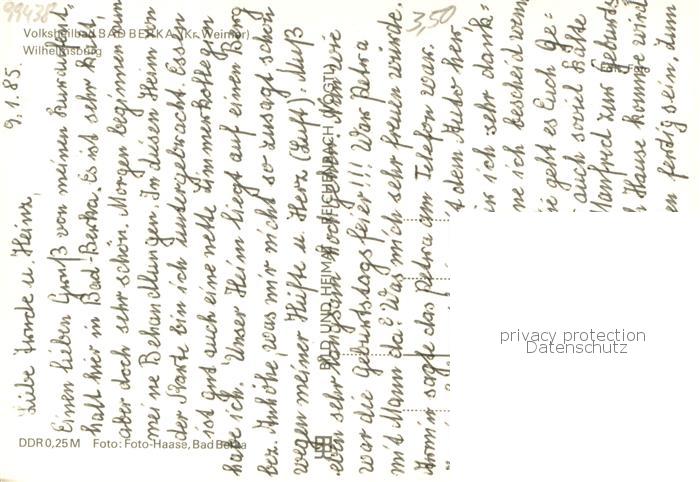 99438
3,50
Volksheilbad BAD BERKA (Kr. Weimar)
Wilhelmsburg
9.1.85.
Liebe Trude u. Heinz,
Einen lieben Gruß von meinen Kuraufent-
halt hier in Bad-Berka. Es ist sehr kalt,
aber doch sehr schön. Morgen beginnen nun
meine Behandlungen. In diesen Heim von
der Karte bin ich untergebracht. Essen
ist gut auch eine nette Zimmerkollegin
habe ich. Unser Heim liegt auf einen Berg
bez. Anhöhe, was mir nicht so zusagt schon
wegen meiner Hüfte u. Herz (Luft). Muß
eben sehr langsam hochgehen. Nun wie
war die Geburtstagsfeier!!! War Petra
mit Mann da? Was mich sehr freuen würde.
Armin sagte das Petra am Telefon war.
t dem Auto her
ir ich sehr dank-
me ich bescheid wenn
ie geht es Euch Ge-
t auch soviel Kälte
Manfred zur Geburts
h Hause komme wird
en fertig sein. Zum
BILD UND HEIMAT REICHENBACH (VOGTL)
DDR 0,25 M Foto: Foto-Haase, Bad Berka
privacy protection
Datenschutz